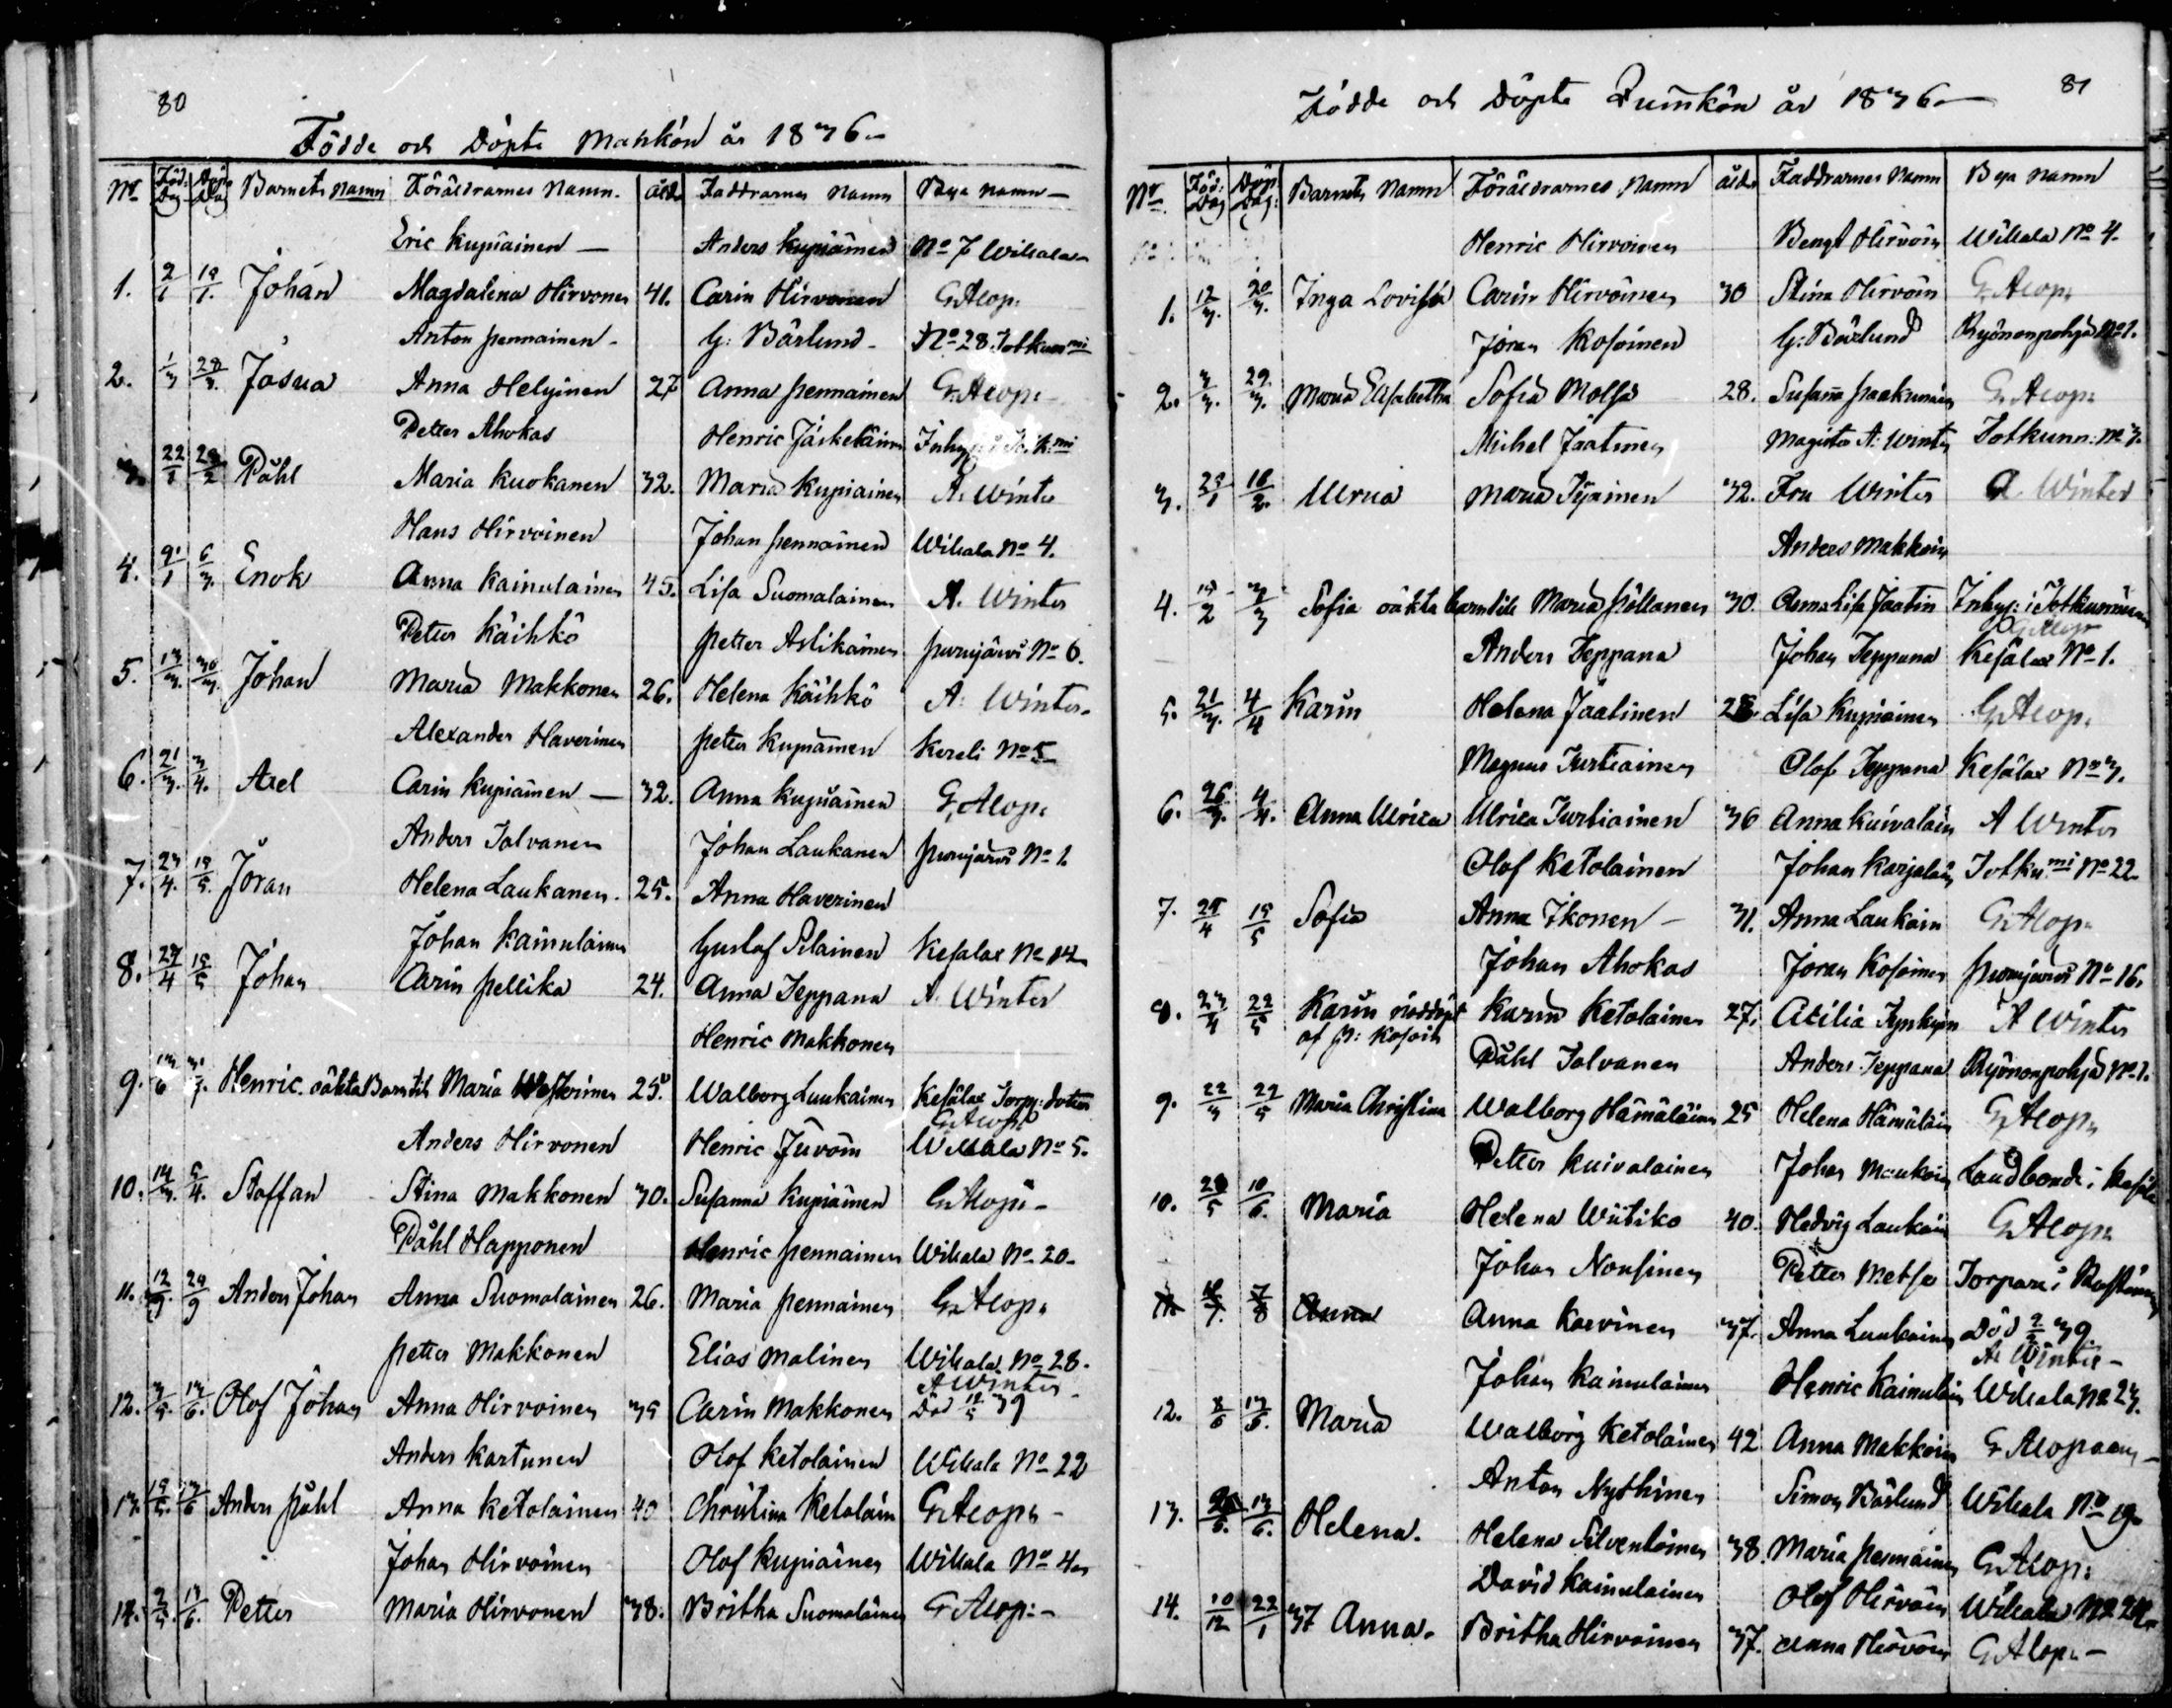 80
Födde och Döpte Mankön år 1836
No Föd: Dag Döp: Dag Barnets namn Föräldrarnes Namn. ålder Faddrarnes Namn Bya namn
Eric Kupiainen Anders Kupiainen No 7 Willala
1. 2/1 19/1. Johan Magdalena Hirvonen 41. Carin Hirvonen G. Alop:
Anton Pennainen G: Bärlund No 28 Totkunmi
2. 1/3 28/3. Josua Anna Helyinen 27 Anna Pennainen G. Alop:
Petter Ahokas Henric Jäskeläinen
3. 22/1 Påhl Maria Kuokanen 32. Maria Kupiainen A. Winter
Hans Hirvoinen Johan Pennainen Willala No 4.
4. 6/3. Enok Anna Kainulainen 45. Lisa Suomalainen A. Winter
Petter Käihkö Petter Asikainen Purujärvi No 6.
5. 13/3. 30/3. Johan Maria Makkonen 26. Helena Käihkö A: Winter
Alexander Haverinen Petter Kupiainen Kereli No 5
6. 21/3. 3/4. Axel Carin Kupiainen 32. Anna Kupiainen G. Alop:
Anders Talvanen Johan Laukanen Purujärvi No 1.
7. 23/4. 19/5. Jöran Helena Laukanen. 25. Anna Haverinen
Johan Kainulainen Gustaf Silainen Kesalax No 14
8. 27/4 19/5 Johan Carin Pellika 24. Anna Teppana A. Winter
Henric Makkonen
9. Henric. oäkta Barn til Maria 25. Walborg Luukainen Kesälax Torp: dotter
G. Alop:
Anders Hirvonen Henric Juvoin Willala No 5.
10. 14/3. 5/4. Staffan Stina Makkonen 30. Susanna Kupiainen G. Alop:
Påhl Happonen Henric Pennainen Willala No 20
11. 12/9. 29/9 Anders Johan Anna Suomalainen 26. Maria Pennainen G. Alop:
Petter Makkonen Elias Malinen Willala No 28.
A Winter
12. 3/5. 13/6. Olof Johan Anna Hirvoinen 35 Carin Makkonen Död 39
Anders Kartunen Olof Ketolainen Willala No 22
13. 19/5. 13/6 Anders Påhl Anna Ketolainen 40 Christina Ketolain G. Alop:
Johan Hirvoinen Olof Kupiainen Willala No 4
14. 2/5. 13/6. Petter Maria Hirvonen 38. Britha Suomalainen G. Alop:
81
Födde och Döpte Quinnkön år 1836
No Föd: Dag Döp: Dag: Barnets Namn Föräldrarnes Namn ålder Faddrarnes Namn Bya namn
Henric Hirvoinen Bengt Hirvoin Willala No 4.
1. 12/3. 20/3. Inga Lovisa Carin Hirvoinen 30 Stina Hirvoin G. Alop:
Jöran Kosoinen G: Bärlund Ryönanpohja No 1.
2. 3/3. 29/3. Maria Elisabetha Sofia Molsa 28. Susana Paakunain G. Alop:
Michel Jaatinen Magister A: Winter Totkunn: No 3.
3. 29/1 18/2. Ulrica Maria Tyainen 32. Fru Winter A. Winter
Anders Makkoin
4. 19/2 3/3 Sofia oäkta barn til Maria Pöllanen 30. Anna Lisa Jaatin Inhys: i Totkunniemi
G. Alop
Anders Teppana Johan Teppana Kesälax No 1.
5. 21/3. 4/4 Karin Helena Jaatinen 28. Lisa Kupiainen G. Alop:
Magnus Turtiainen Olof Teppana Kesälax No 3.
6. 26/3. 4/4. Anna Ulrica Ulrica Turtiainen 36 Anna Kuivalain A Winter
Olof Ketolainen Johan Karjalain Totkumi No 22
7. 29/4 19/5 Sofia Anna Ikonen 31. Anna Laukain G. Alop:
Johan Ahokas Jöran Kosoinen Purujärvi No 16.
8. 23/4 22/5 Karin nöddöpt Karin Ketolainen 27. Cecilia Tynkyin A Winter
af J: Kosoin Påhl Talvanen Anders Teppana Ryönonpohja No 1.
9. 22/4 22/5 Maria Christina Walborg Hämäläinen 25 Helena Hämäläin G. Alop:
Petter Kuivalainen Johan Maukoin Landbonde i
10. 10/6. Maria Helena Wiitiko 40. Hedvig Laukain G. Alop:
Johan Nousinen Petter Metsa Torpare i
11. 7/8 Anna Anna Karvinen 37. Anna Luukainen död 39.
A: Winter
Johan Kainulainen Henric Kainulain Willala No 23.
12. 8/6 13/6. Maria Walborg Ketolainen 42 Anna Makkoin G. Alopaeus
Anton Nythinen Simon Bärlund Willala No 19
13. 13/6. Helena. Helena Silventoinen 38. Maria Pennainen G. Alop:
David Kainulainen Olof Hirvoin Willala No
14. 10/12 22/1 37 Anna. Britha Hirvoinen 37. Anna Hirvoin G. Alop: